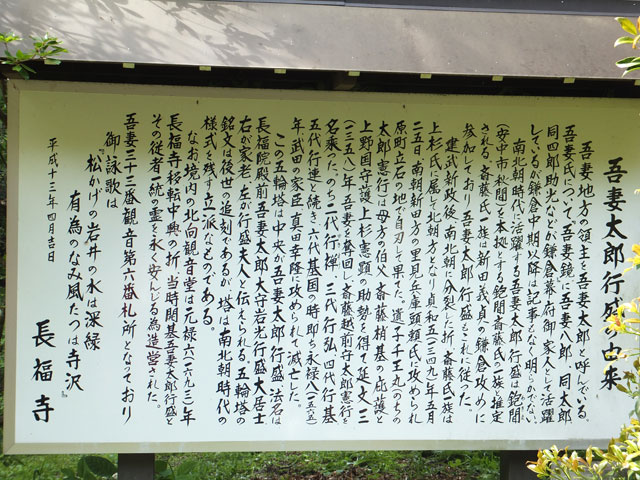 吾妻太郎行盛の由来
吾妻地方の領主を吾妻太郎と呼んでいる。
吾妻氏について、吾妻鏡に吾妻八郎、同太郎
同四郎助光などが鎌倉幕府御家人として活躍
しているが鎌倉中期以降は記事となく明らかでない。
南北朝時代に活躍する吾妻太郎行盛は飽間
(安中市秋間)を本拠とする飽間斎藤氏の一族と推定
される。斎藤氏一族は新田義貞の鎌倉攻めに
参加しており、吾妻太郎行盛もこれに従った。
建武新政後、南北朝に分裂した折、斎藤氏一族は
上杉氏に属して北朝方となり貞和五(一三四九)年五月
二五日南朝新田方の里見兵庫頭頼氏に攻められ
原町立石の地で自刃して果てた。遺子千王丸(のちの
太郎憲行)は母方の伯父、斎藤梢基の庇護と
上野国守護上杉憲顕の助勢を得て延文二
(一三五八)年、吾妻を奪回し斎藤越前守太郎憲行を
名乗った。のち二代行禅、三代行弘、四代行基
五代行連と続き六代基国の時、即ち永禄八(一五六五)
年、武田の家臣真田幸隆に攻められて滅亡した。
この五輪塔は中央が吾妻太郎行盛(法名は
長福院殿前吾妻太郎大守岩光行盛大居士
右が家老、左が行盛夫人と伝えられる。五輪塔の
銘文は後世の追刻であるが、塔は南北朝時代の
様式を残す立派なものである。
なお境内の北向観音堂は元禄六(一六九三)年
長福寺移転中興の折、当時開基吾妻太郎行盛と
その従者一統の霊を永く安んじる為造営された。
吾妻三十三番観音第六番札所となっており
御詠歌は
『松かげの岩井の水は深緑
有為のなみ風たつは寺沢』
平成十三年四月吉日
長福寺